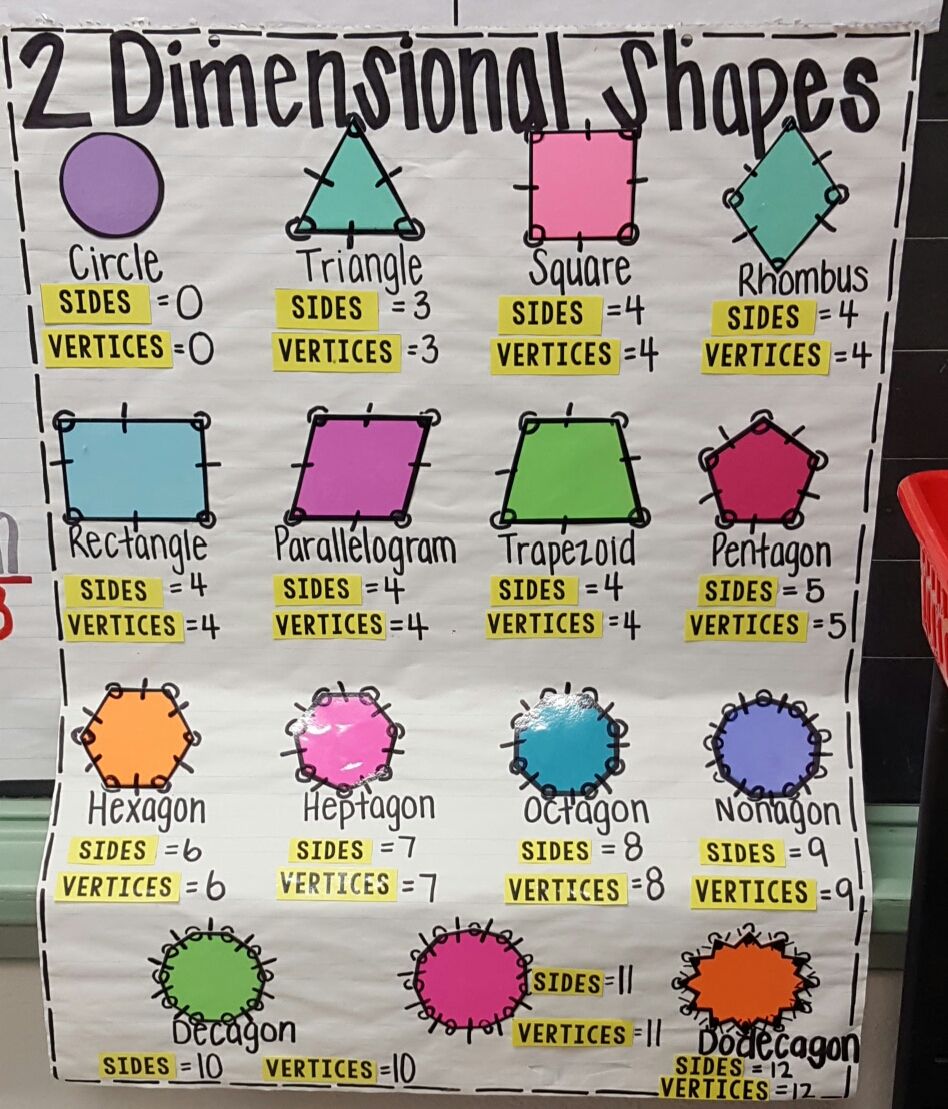 2 Dimensional Shapes
Circle
SIDES =0
VERTICES =0
Triangle
SIDES =3
VERTICES =3
Square
SIDES =4
VERTICES =4
Rhombus
SIDES =4
VERTICES =4
Rectangle
SIDES =4
VERTICES =4
Parallelogram
SIDES =4
VERTICES =4
Trapezoid
SIDES =4
VERTICES =4
Pentagon
SIDES =5
VERTICES =5
Hexagon
SIDES =6
VERTICES =6
Heptagon
SIDES =7
VERTICES =7
Octagon
SIDES =8
VERTICES =8
Nonagon
SIDES =9
VERTICES =9
Decagon
SIDES =10 VERTICES =10
SIDES =11
VERTICES =11
Dodecagon
SIDES =12
VERTICES =12